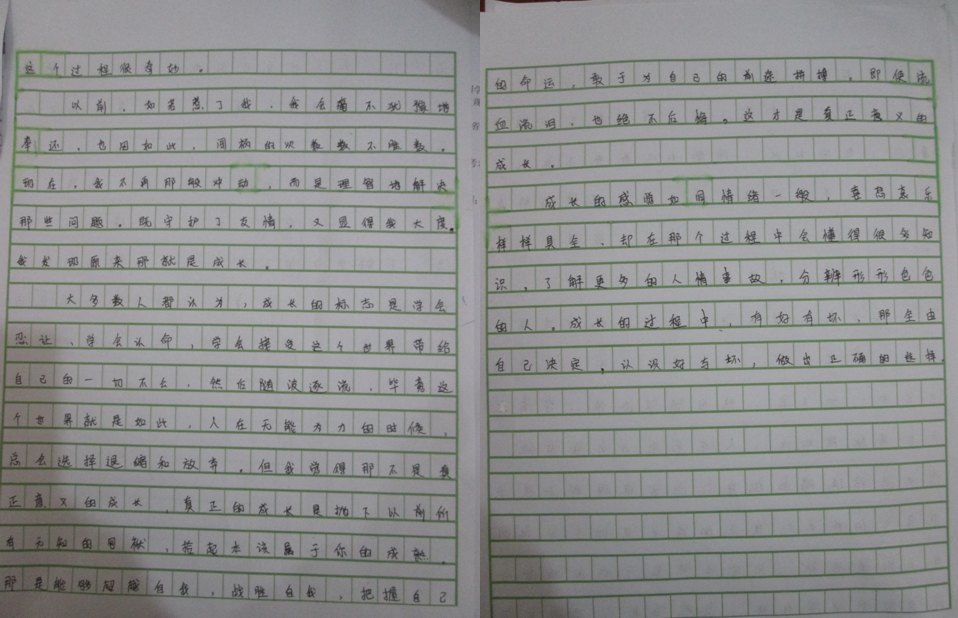 这个过程很奇妙。
以前，如若惹了我，我会毫不犹豫地
奉还，也因如此，闹祸的次数数不胜数。
现在，我不再那般冲动，而是理智地解决
那些问题。既守护了友情，又显得我大度。
我发现原来那就是成长。
大多数人都认为，成长的标志是学会
忍让、学会认命，学会接受这个世界带给
自己的一切不公，然后随波逐流，毕竟这
个世界就是如此，人在无能为力的时候，
总会选择退缩和放弃。但我觉得那不是真
正意义的成长，真正的成长是抛下以前所
有无知的，拾起本该属于你的成熟。
那是能够超越自我，战胜自我，把握自己
的命运，敢于为自己的前途拼搏，即使流
血流泪，也绝不后悔。这才是真正意义的
成长。
成长的感悟如同情绪一般，喜怒哀乐
样样具全，却在那个过程中会懂得很多知
识，了解更多的人情事故，分辨形形色色
的人。成长的过程中，有好有坏，那全由
自己决定，认识好与坏，做出正确的选择。